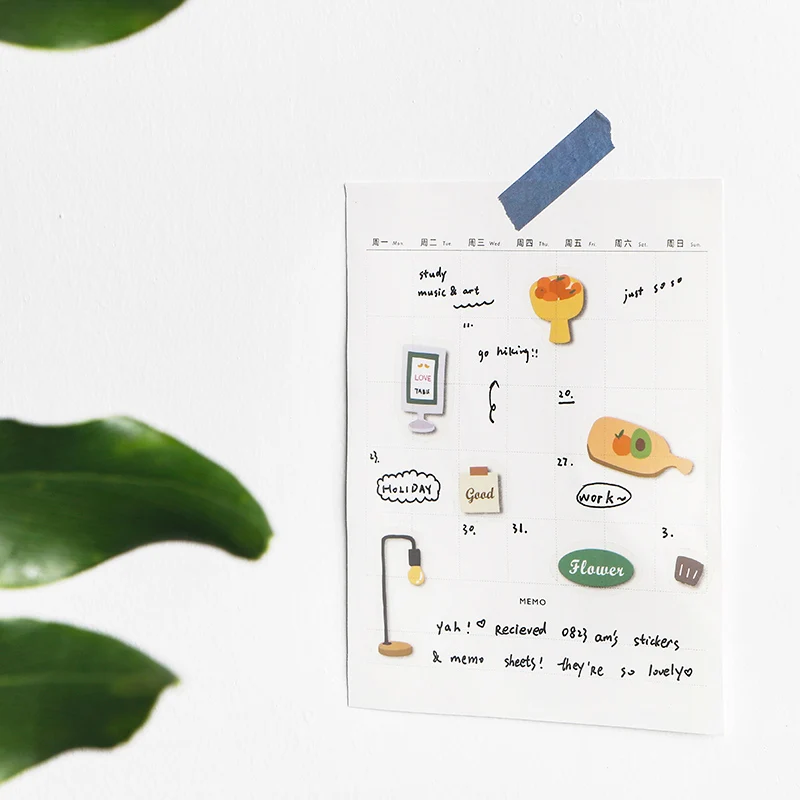 周一 Mon. 周二 Tue. 周三 Wed. 周四 Thu. 周五 Fri. 周六 Sat. 周日 Sun.
study
music & art
just so so
11.
go hiking!!
LOVE
TABLE
20.
23.
27.
HOLIDAY
Good
work~
30.
31.
3.
Flower
MEMO
yah! ♡ Recieved 0823 am's stickers
& memo sheets! they're so lovely♡